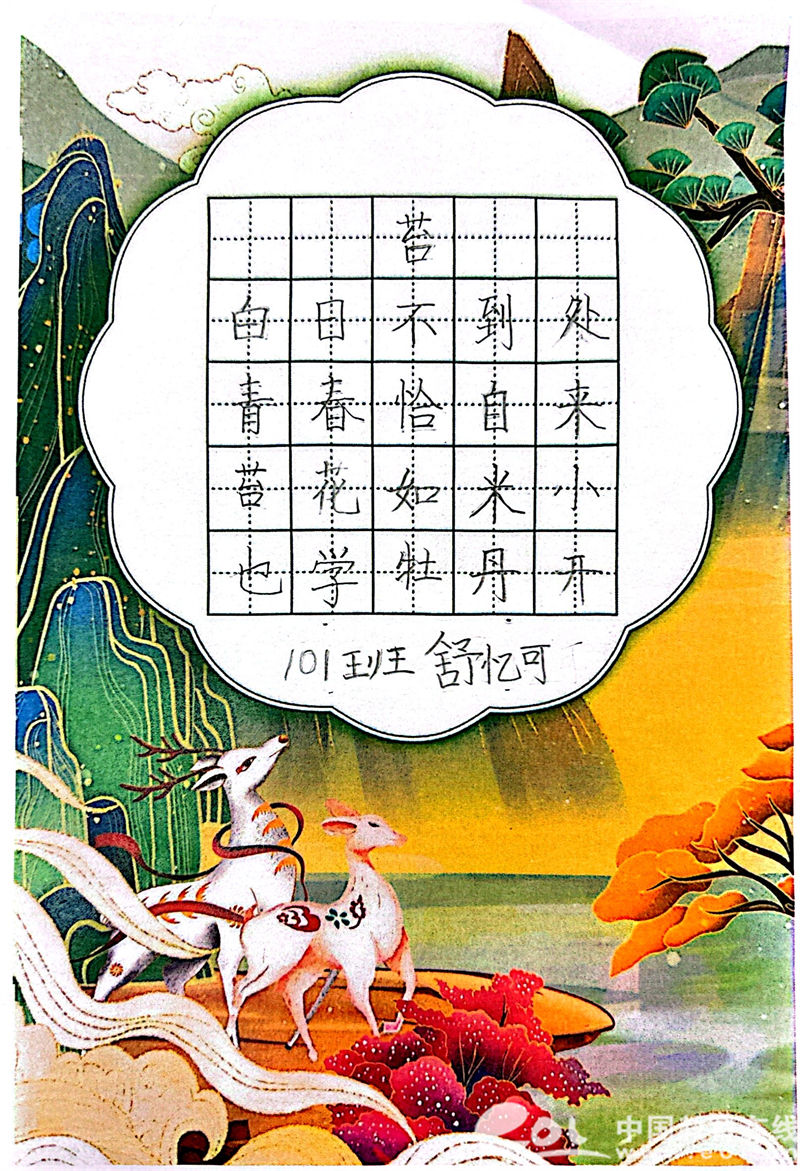 苔
白日不到处
青春恰自来
苔花如米小
也学牡丹开
101班 舒忆可
中国 在线